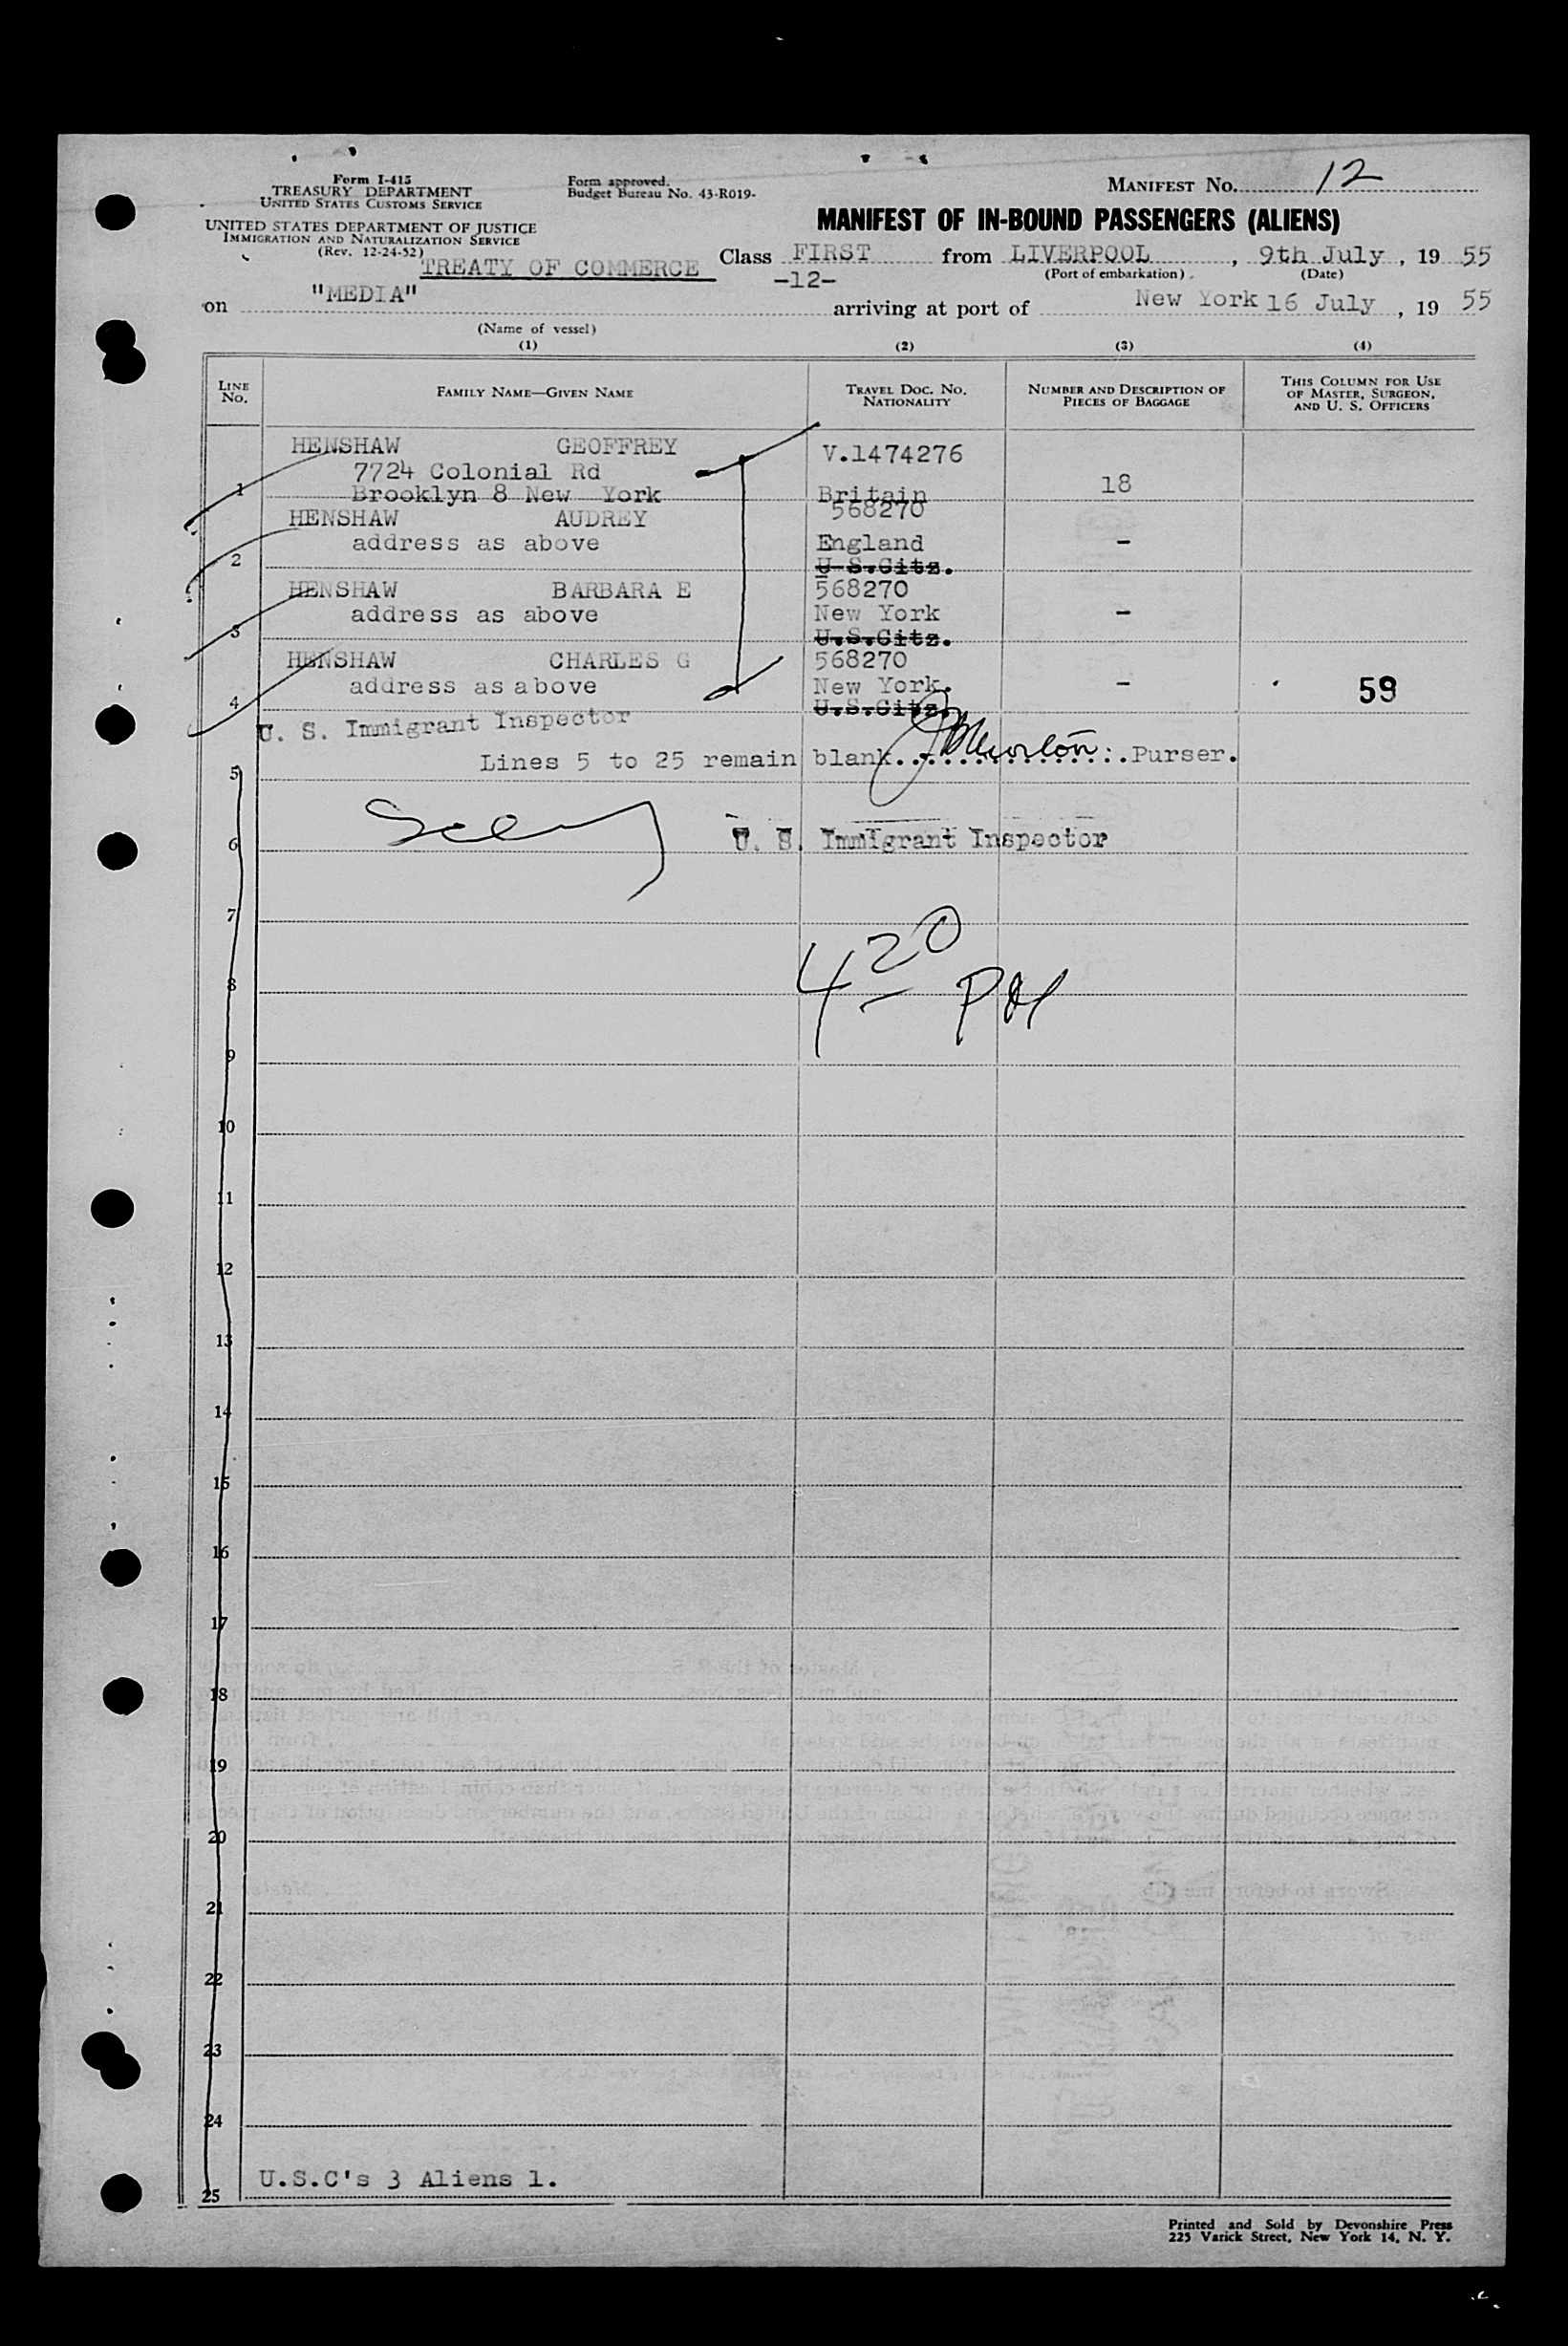 Form I-415
TREASURY DEPARTMENT
UNITED STATES CUSTOMS SERVICE
UNITED STATES DEPARTMENT OF JUSTICE
IMMIGRATION AND NATURALIZATION SERVICE
(Rev. 12-24-52)
Form approved.
Budget Bureau No. 43-R019-
MANIFEST NO. 12
MANIFEST OF IN-BOUND PASSENGERS (ALIENS)
TREATY OF COMMERCE
Class FIRST from LIVERPOOL, 9th July, 19 55
(Port of embarkation) (Date)
-12-
on "MEDIA" arriving at port of New York 16 July, 19 55
(Name of vessel)
(1) (2) (3) (4)
LINE NO.
FAMILY NAME—GIVEN NAME
TRAVEL DOC. NO. NATIONALITY
NUMBER AND DESCRIPTION OF PIECES OF BAGGAGE
THIS COLUMN FOR USE OF MASTER, SURGEON, AND U. S. OFFICERS
HENSHAW GEOFFREY V.1474276
7724 Colonial Rd
1 Brooklyn 8 New York Britain 18
HENSHAW AUDREY 568270
address as above England -
2 U S.Citz.
HENSHAW BARBARA E 568270
address as above New York -
3 U.S.Citz.
HENSHAW CHARLES G 568270
address as above New York. - 59
4 U.S.Citz.
U. S. Immigrant Inspector
Lines 5 to 25 remain blank. Purser.
5
U. S. Immigrant Inspector
6
7
4 20 PM
8
9
10
11
12
13
14
15
16
17
18
19
20
21
22
23
24
U.S.C's 3 Aliens 1.
25
Printed and Sold by Devonshire Press
225 Varick Street, New York 14, N. Y.